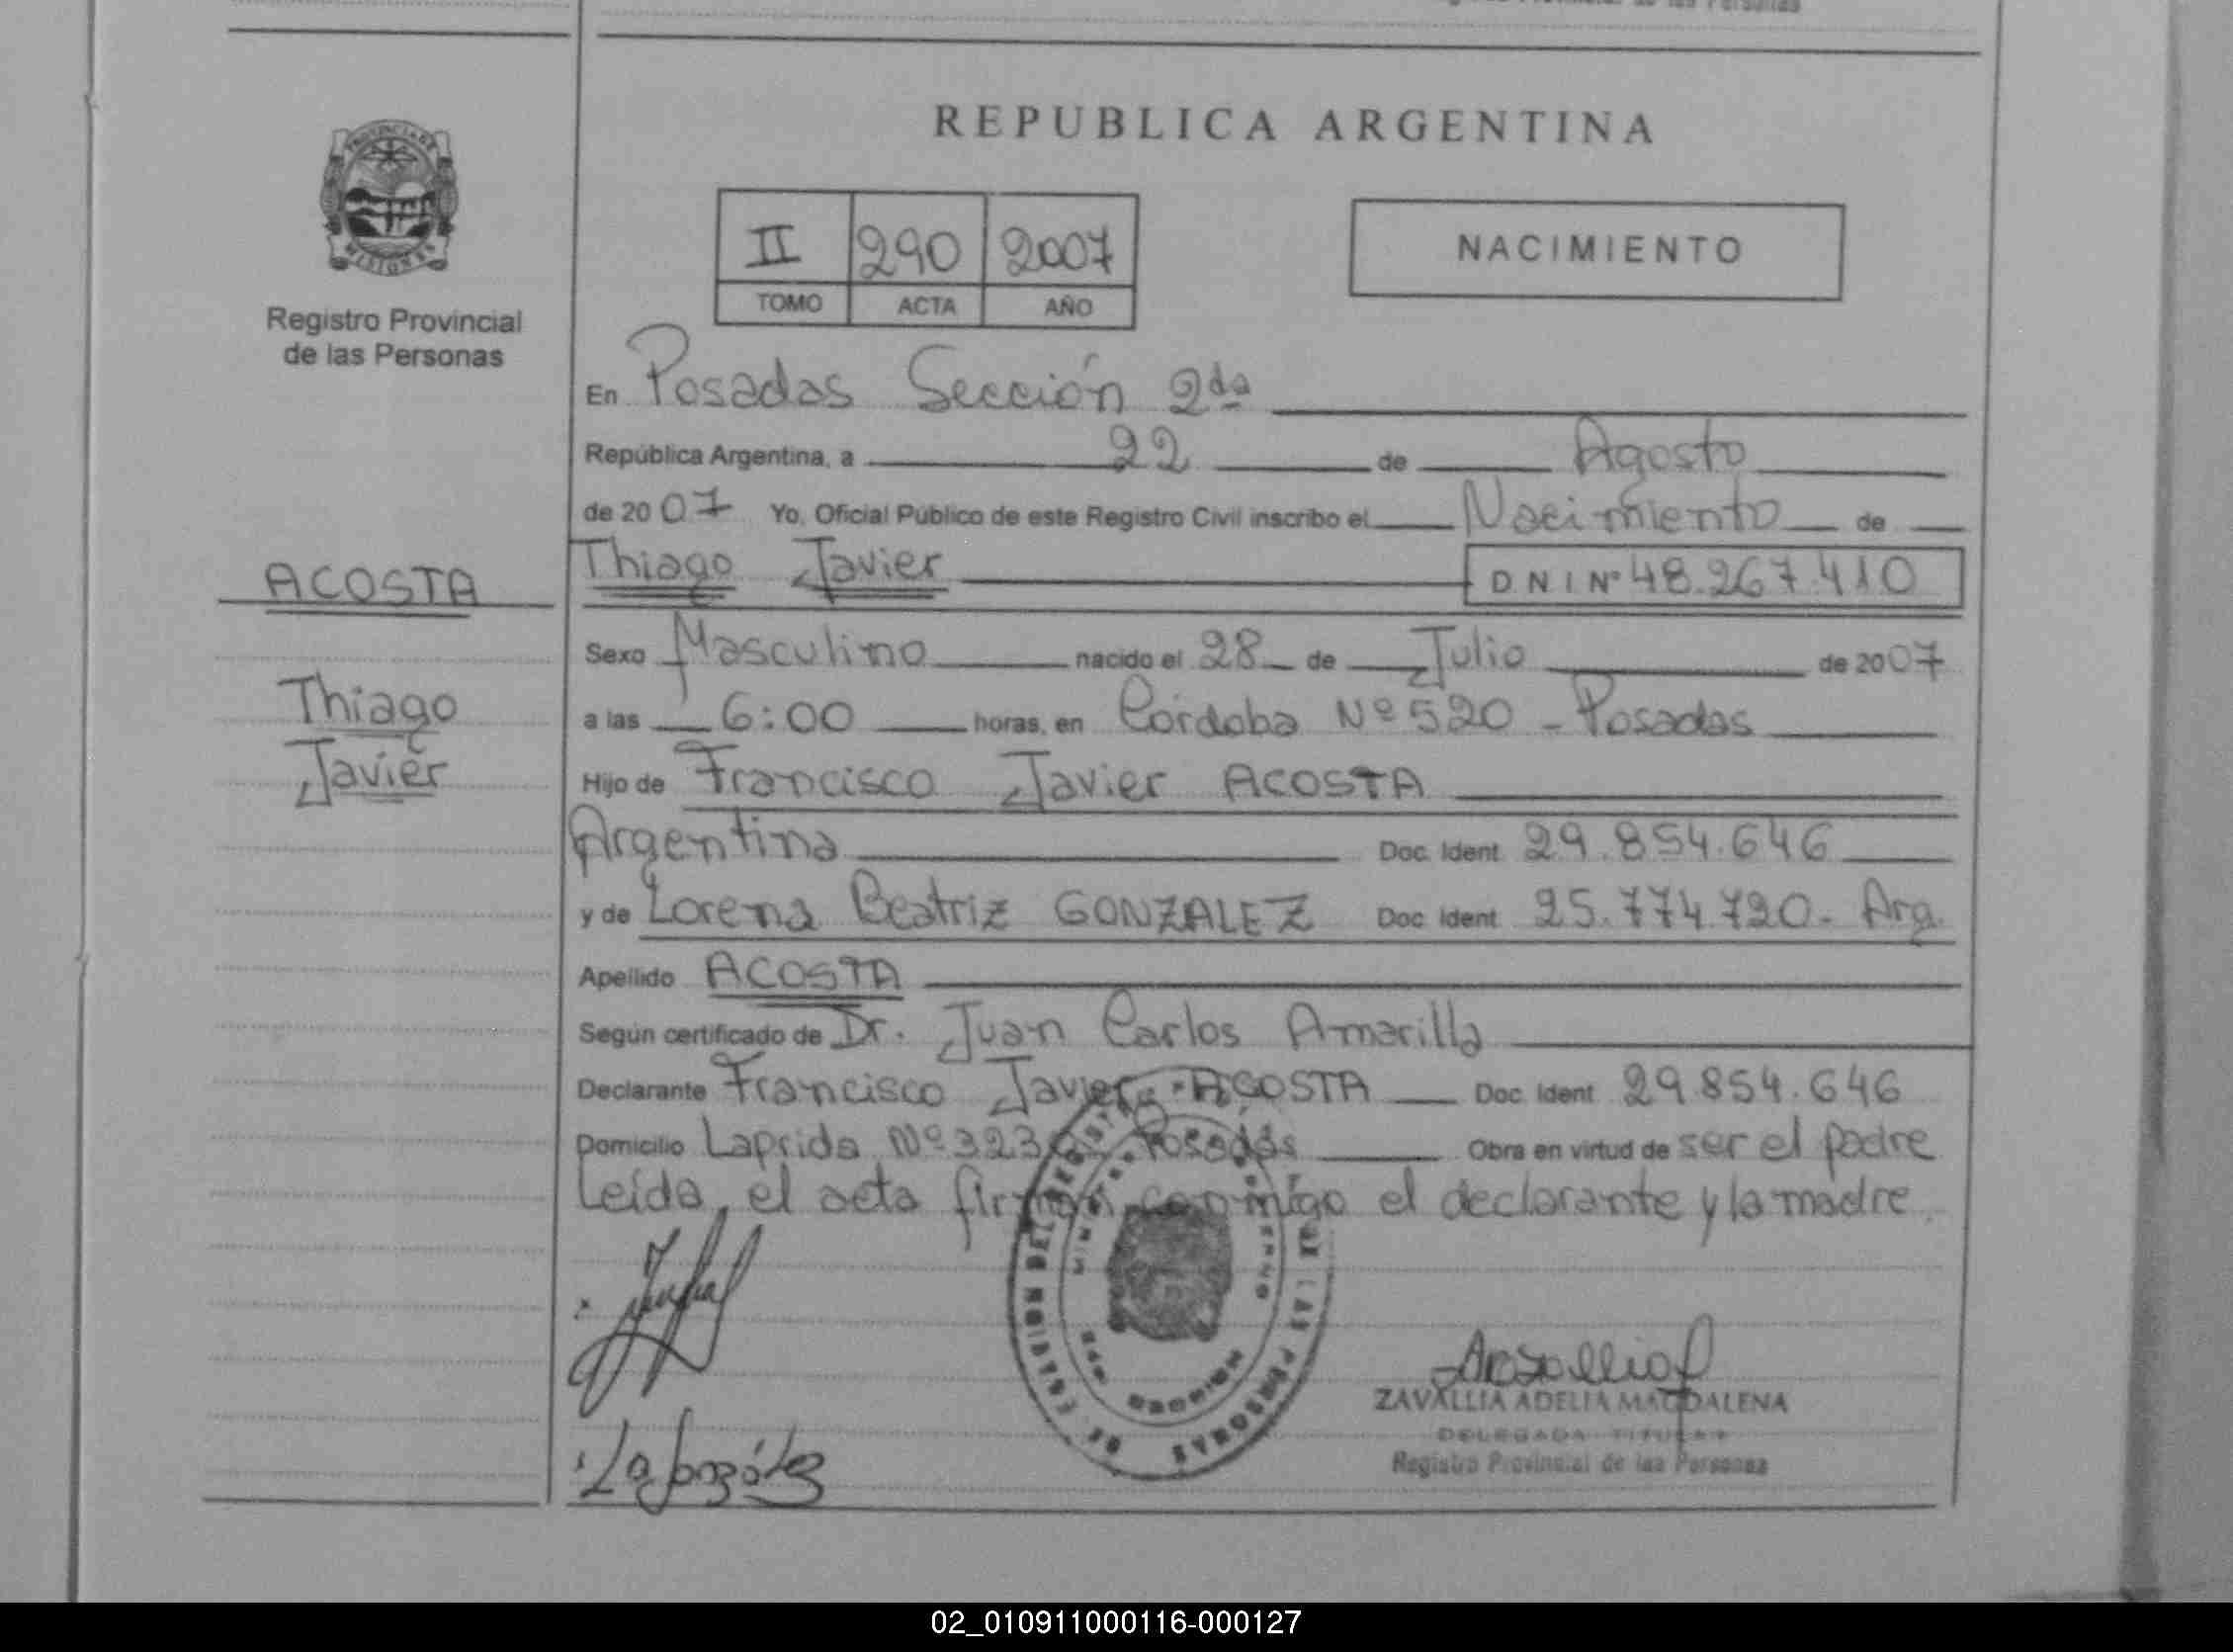 REPUBLICA ARGENTINA
II 290 2007
TOMO ACTA AÑO
NACIMIENTO
Registro Provincial
de las Personas
ACOSTA
Thiago
Javier
En Posadas Sección 2da
República Argentina, a 22 de Agosto
de 2007 Yo, Oficial Público de este Registro Civil inscribo el Nacimiento de
Thiago Javier DNI Nº 48.267.410
Sexo Masculino nacido el 28 de Julio de 2007
a las 6:00 horas, en Córdoba Nº 520 - Posadas
Hijo de Francisco Javier ACOSTA
Argentina Doc. Ident. 29.854.646
y de Lorena Beatriz GONZALEZ Doc. Ident. 25.774.720- Arg.
Apellido ACOSTA
Según certificado de Dr. Juan Carlos Amarilla
Declarante Francisco Javier ACOSTA Doc. Ident. 29.854.646
Domicilio Laprida Nº 323 Posadas Obra en virtud de ser el padre
Leída, el acta firman conmigo el declarante y la madre.
ZAVALLIA ADELIA MAGDALENA
DELEGADA TITULAR
Registro Provincial de las Personas
02_010911000116-000127